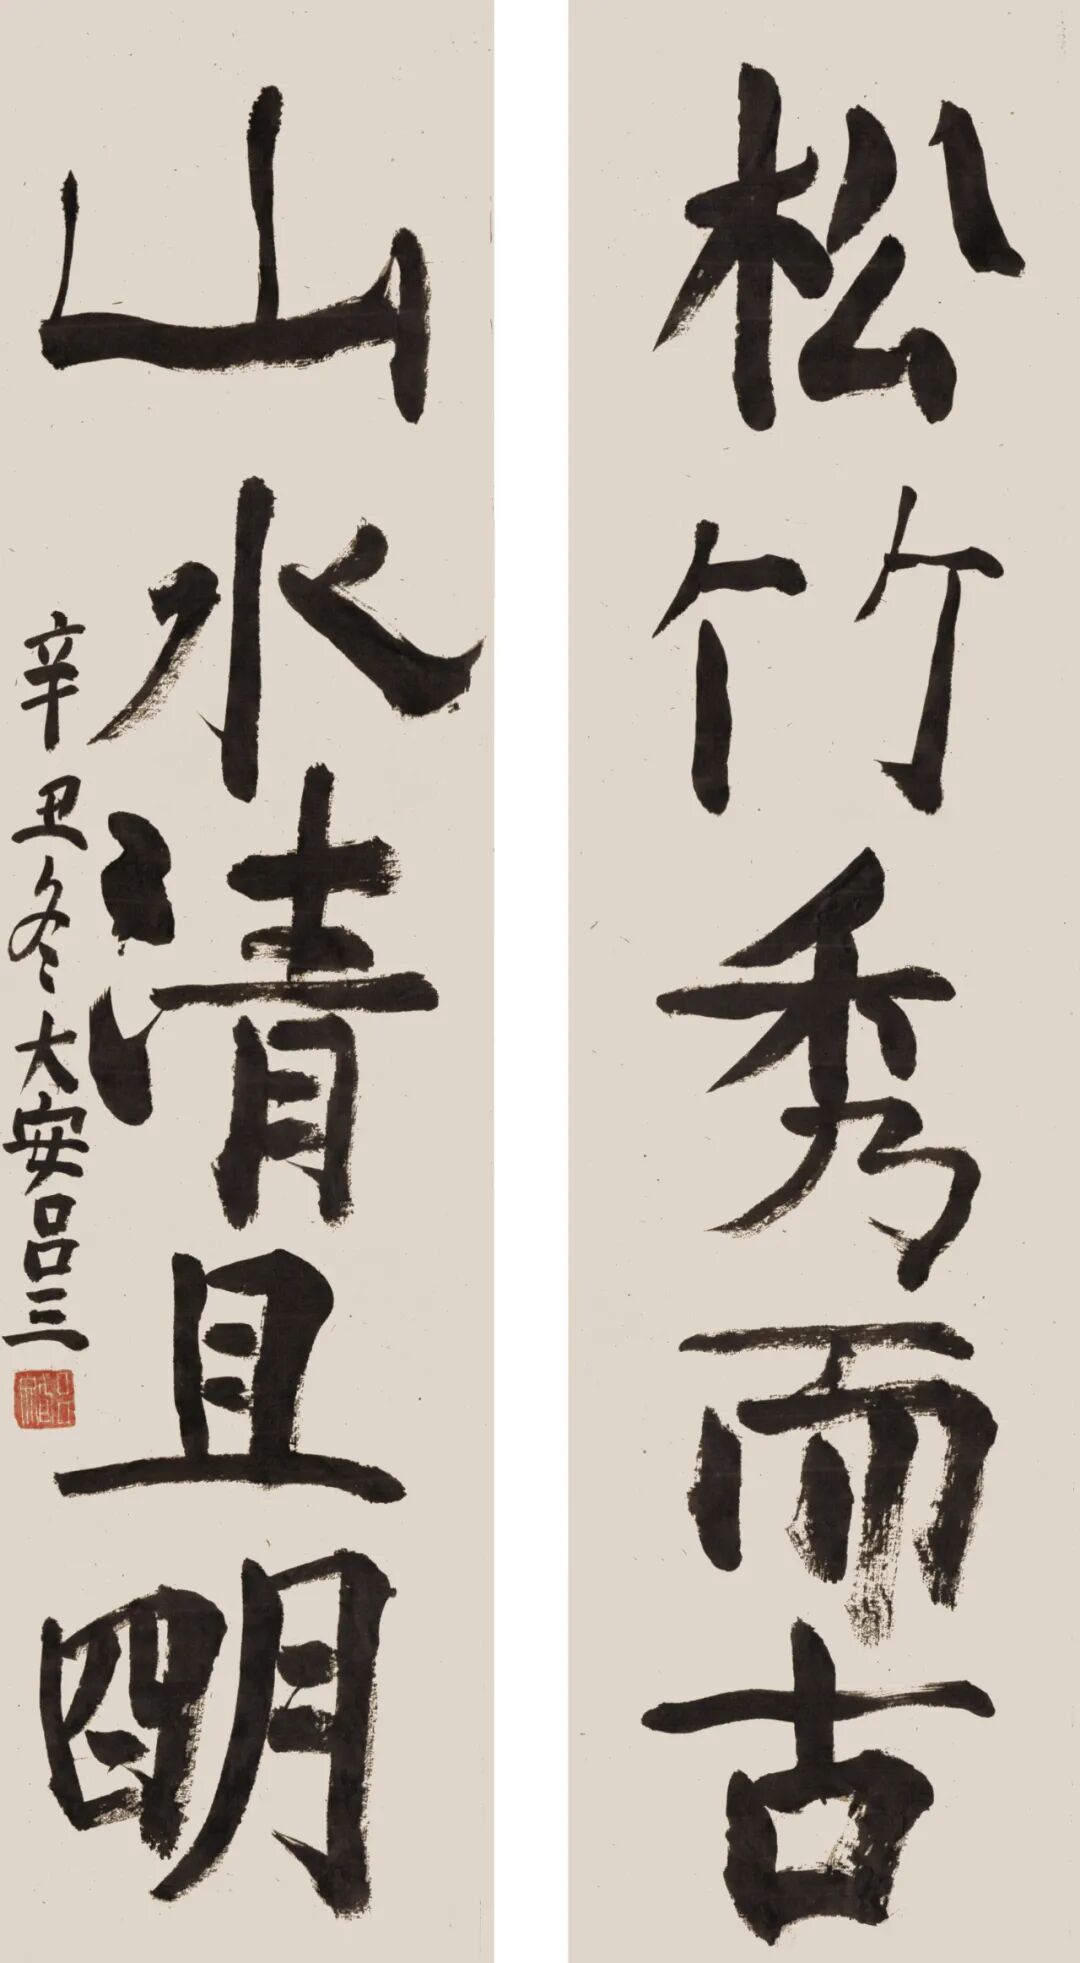 松竹秀而古
山水清且明
辛丑冬大安吕三